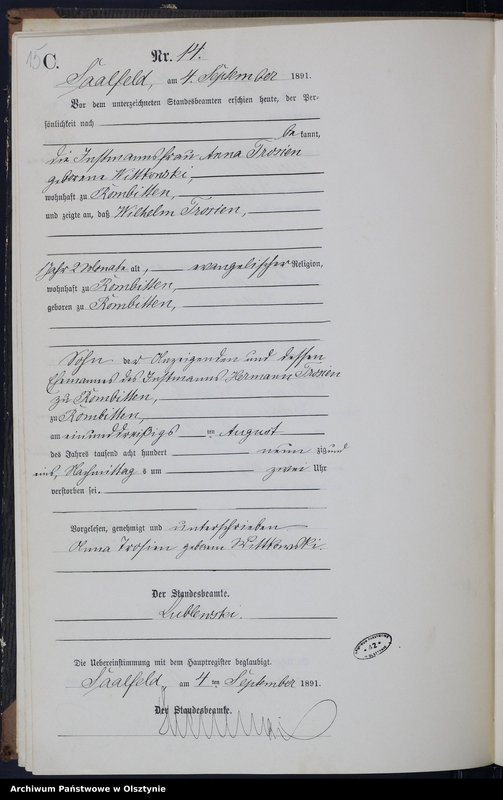 15
C.
Nr. 14.
Saalfeld, am 4. September 1891.
Vor dem unterzeichneten Standesbeamten erschien heute, der Per-
sönlichkeit nach
be kannt,
die Instmannsfrau Anna Trosien
geborene Wittkowski,
wohnhaft zu Kombitten,
und zeigte an, daß Wilhelm Trosien,
1 Jahr 2 Monate alt, evangelischer Religion,
wohnhaft zu Kombitten,
geboren zu Kombitten,
Sohn der Anzeigenden und dessen
Ehemannes des Instmanns Hermann Trosien
zu Kombitten,
zu Kombitten,
am einunddreißigs ten August
des Jahres tausend acht hundert neun zig und
eins, Nachmittag s um zwei Uhr
verstorben sei.
Vorgelesen, genehmigt und unterschrieben
Anna Trosien geborene Wittkowski.
Der Standesbeamte.
Lublewski.
Die Uebereinstimmung mit dem Hauptregister beglaubigt.
Saalfeld, am 4 ten September 1891.
Der Standesbeamte.
42
Archiwum Państwowe w Olsztynie